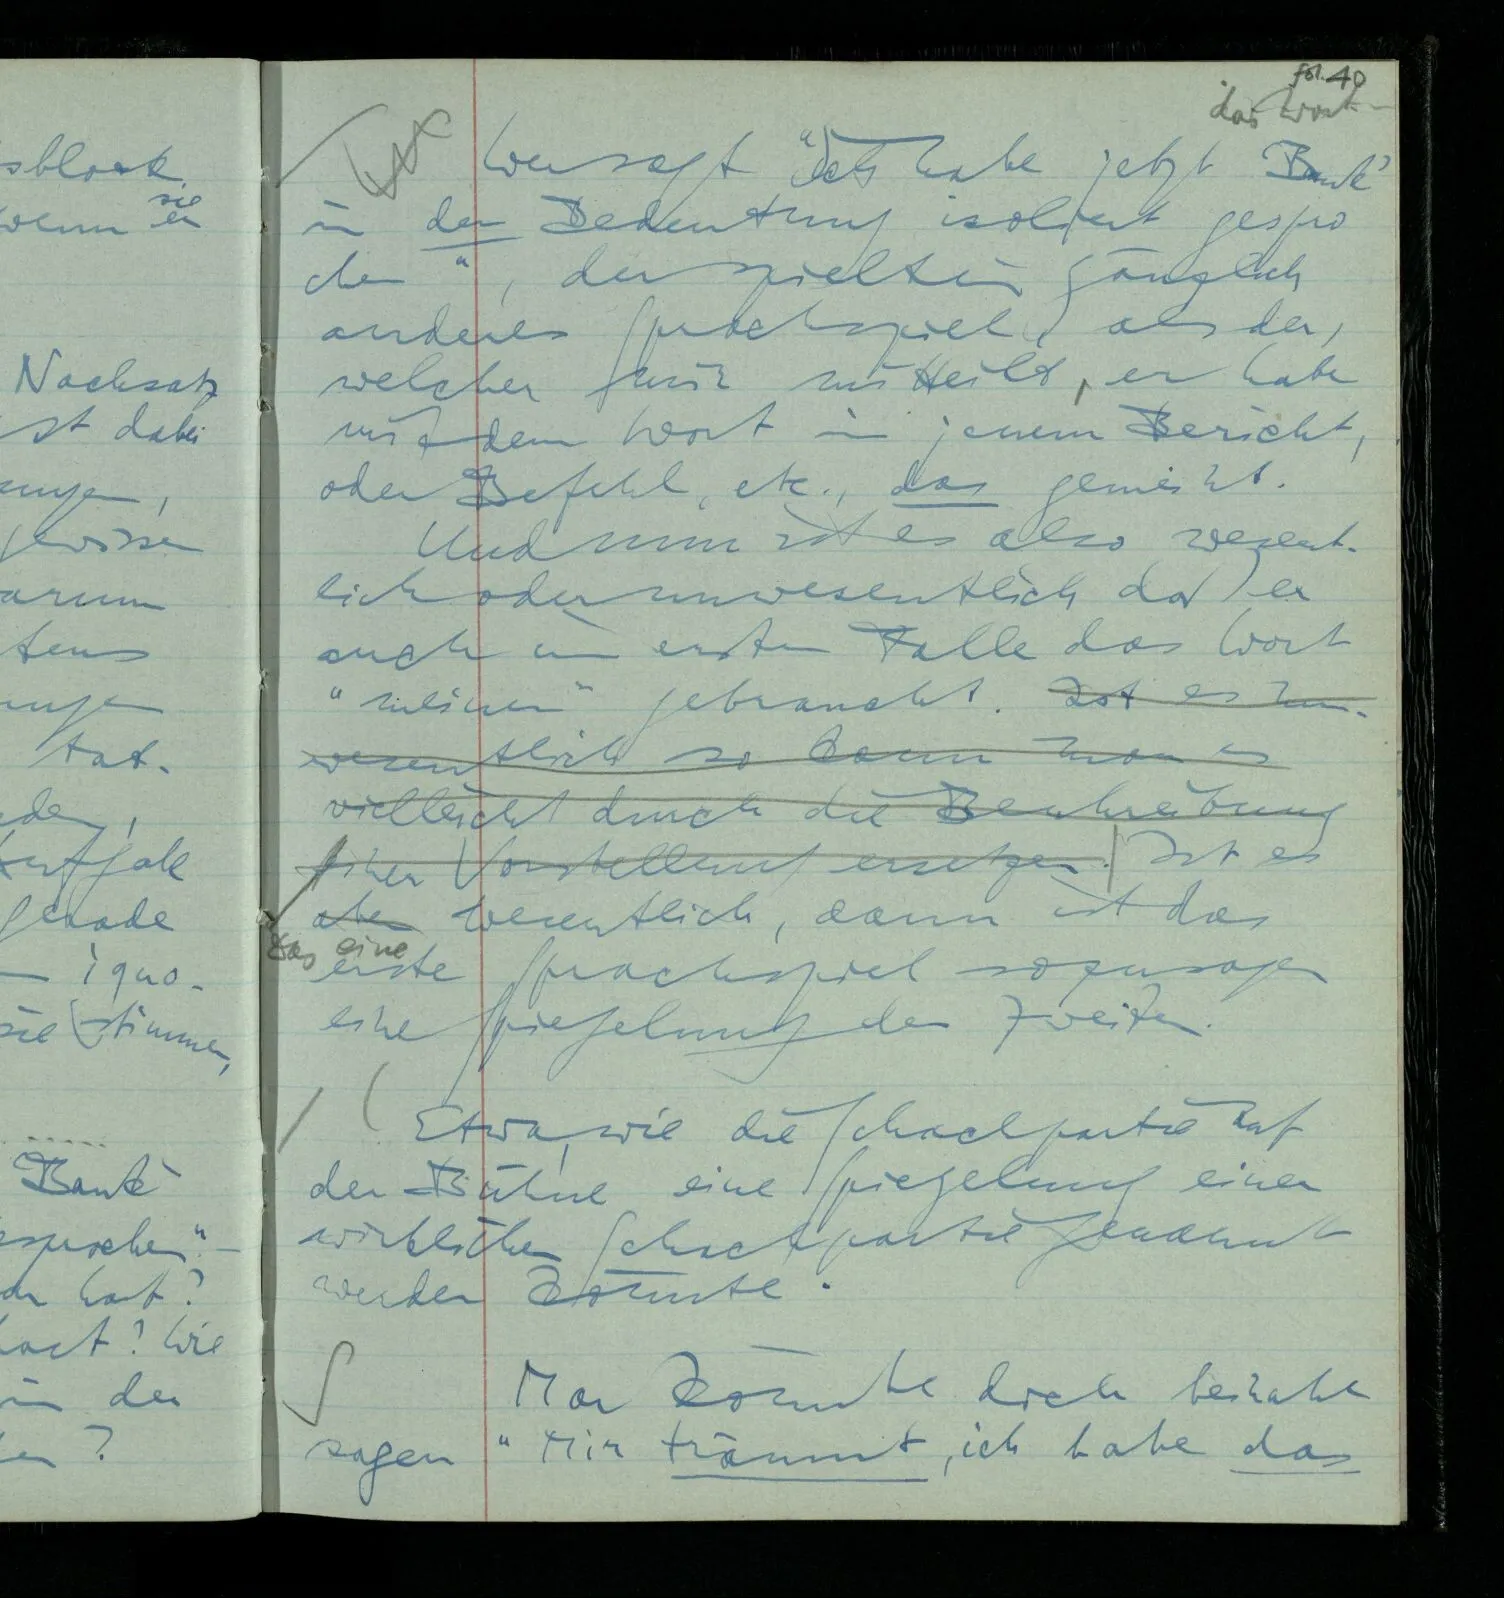 sblock
wenn sie er
Nachsatz
ist dabei
ungen,
gewisse
arum
tens
ungen
tat-
eden,
Aufgabe
gerade
igno-
sie stimmen,
Bank'
esprochen" –
hat?
hast? Wie
in der
en?
fol. 40
das Wort
Wer sagt "Ich habe jetzt 'Bank'
in der Bedeutung isoliert gespro
chen", der spielt ein gänzlich
anderes Sprachspiel, als der,
welcher mir mitteilt, er habe
mit dem Wort in jenem Bericht,
oder Befehl, etc., das gemeint.
Und nun ist es also wesent-
lich oder unwesentlich daß er
auch im ersten Falle das Wort
"meinen" gebraucht. Ist es un-
wesentlich so kann man es
vielleicht durch die Beschreibung
einer Vorstellung ersetzen. Ist es
aber wesentlich, dann ist das
Das eine
erste Sprachspiel sozusagen
eine Spiegelung des zweiten.
Etwa, wie die Schachpartie auf
der Bühne eine Spiegelung einer
wirklichen Schachpartie genannt
werden könnte.
Man könnte doch beinahe
sagen "Mir träumt, ich habe das